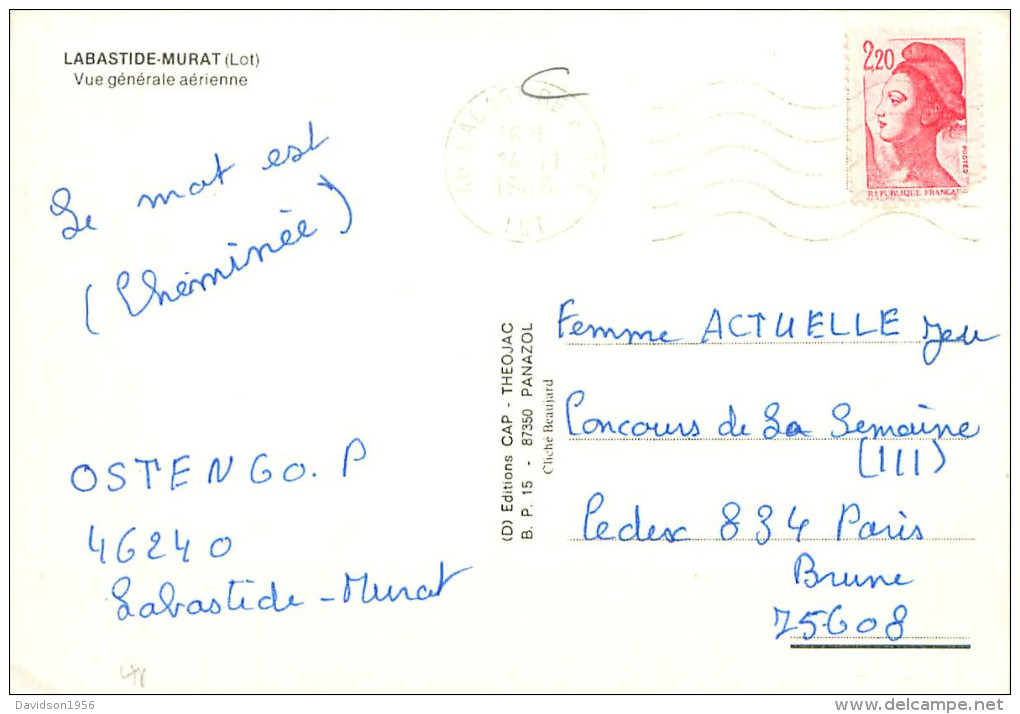 LABASTIDE-MURAT (Lot)
Vue générale aérienne
2,20
POSTES
REPUBLIQUE FRANÇAI
Le mot est
(Cheminée)
OSTENGO. P
46240
Labastide-Murat
(D) Editions CAP - THEOJAC
B. P. 15 - 87350 PANAZOL
Cliché Beaujard
Femme ACTUELLE Jeu
Concours de La Semaine
(111)
Cedex 834 Paris
Brune
75608
Davidson1956
www.delcampe.net